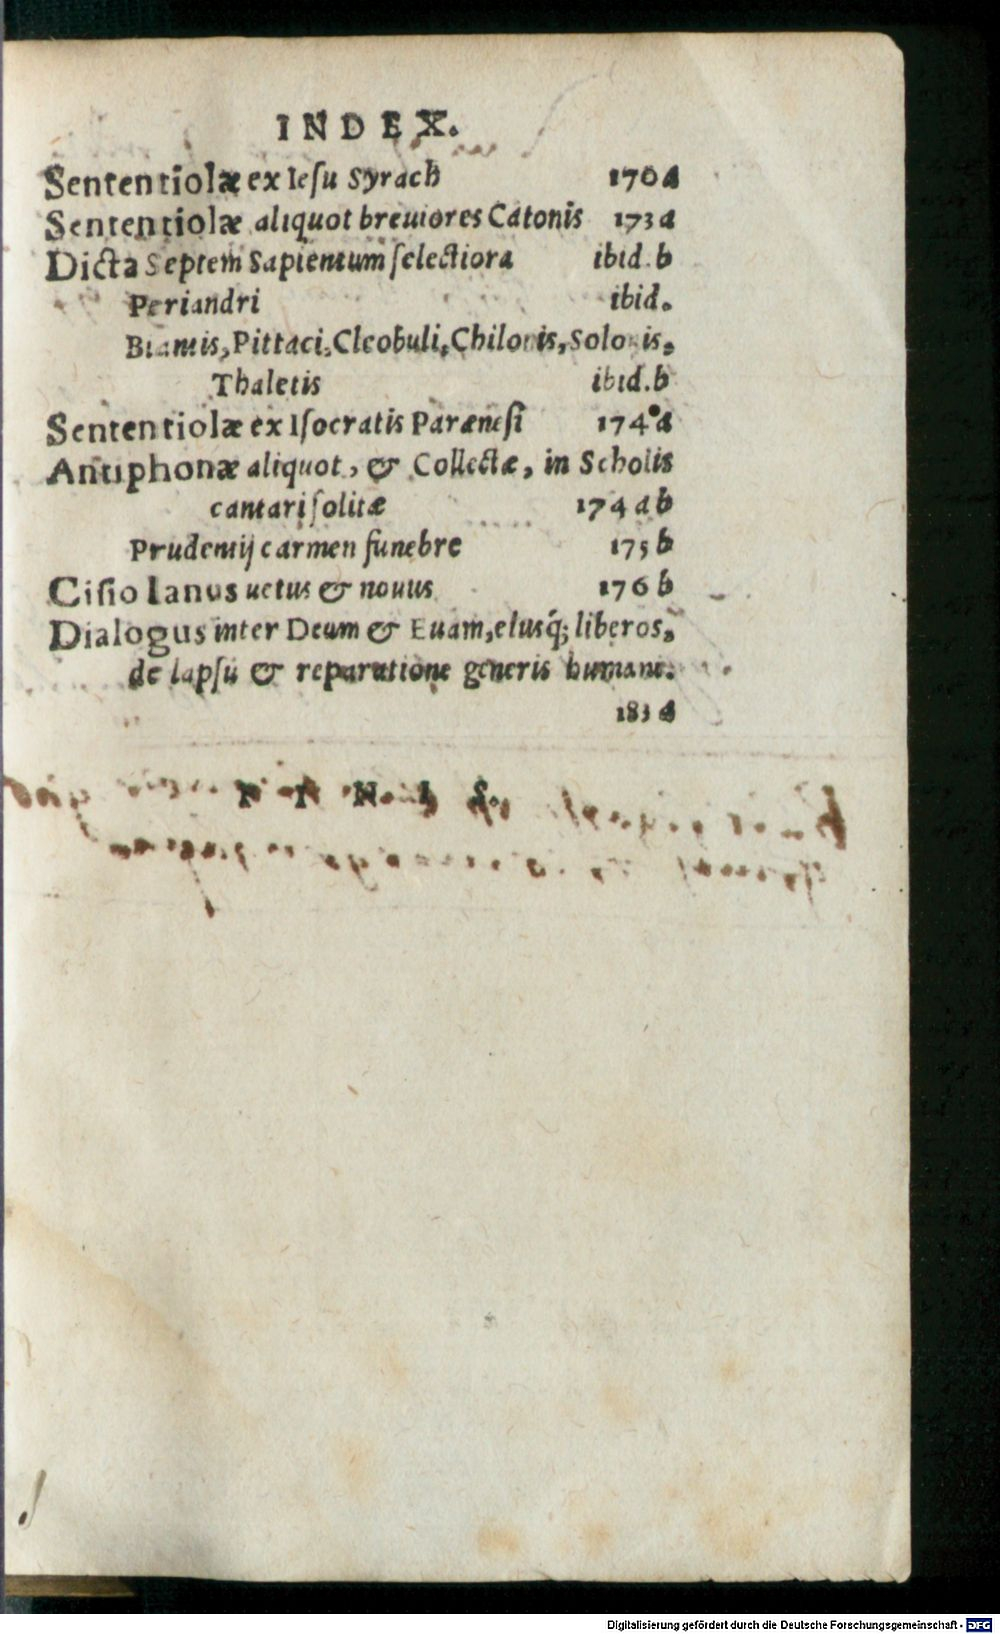 INDEX.
Sententiolæ ex Iesu Syrach 170 a
Sententiolæ aliquot breuiores Catonis 173 a
Dicta Septem Sapientum selectiora ibid. b
Periandri ibid.
Biantis, Pittaci, Cleobuli, Chilonis, Solonis,
Thaletis ibid. b
Sententiolæ ex Isocratis Parænesi 174 a
Antiphonæ aliquot, & Collectæ, in Scholis
cantari solitæ 174 a b
Prudentij carmen funebre 175 b
Cisio Ianus uetus & nouus 176 b
Dialogus inter Deum & Euam, eiusq́; liberos,
de lapsu & reparatione generis humani.
183 a
FINIS.
Digitalisierung gefördert durch die Deutsche Forschungsgemeinschaft - DFG